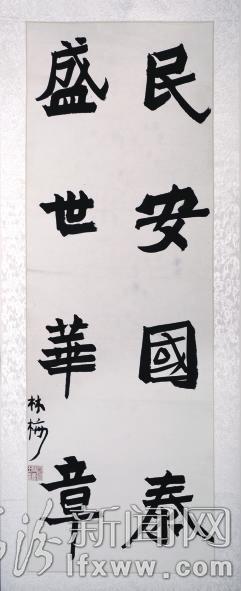 民安國泰
盛世華章
林梅
新闻网
lfxww.com